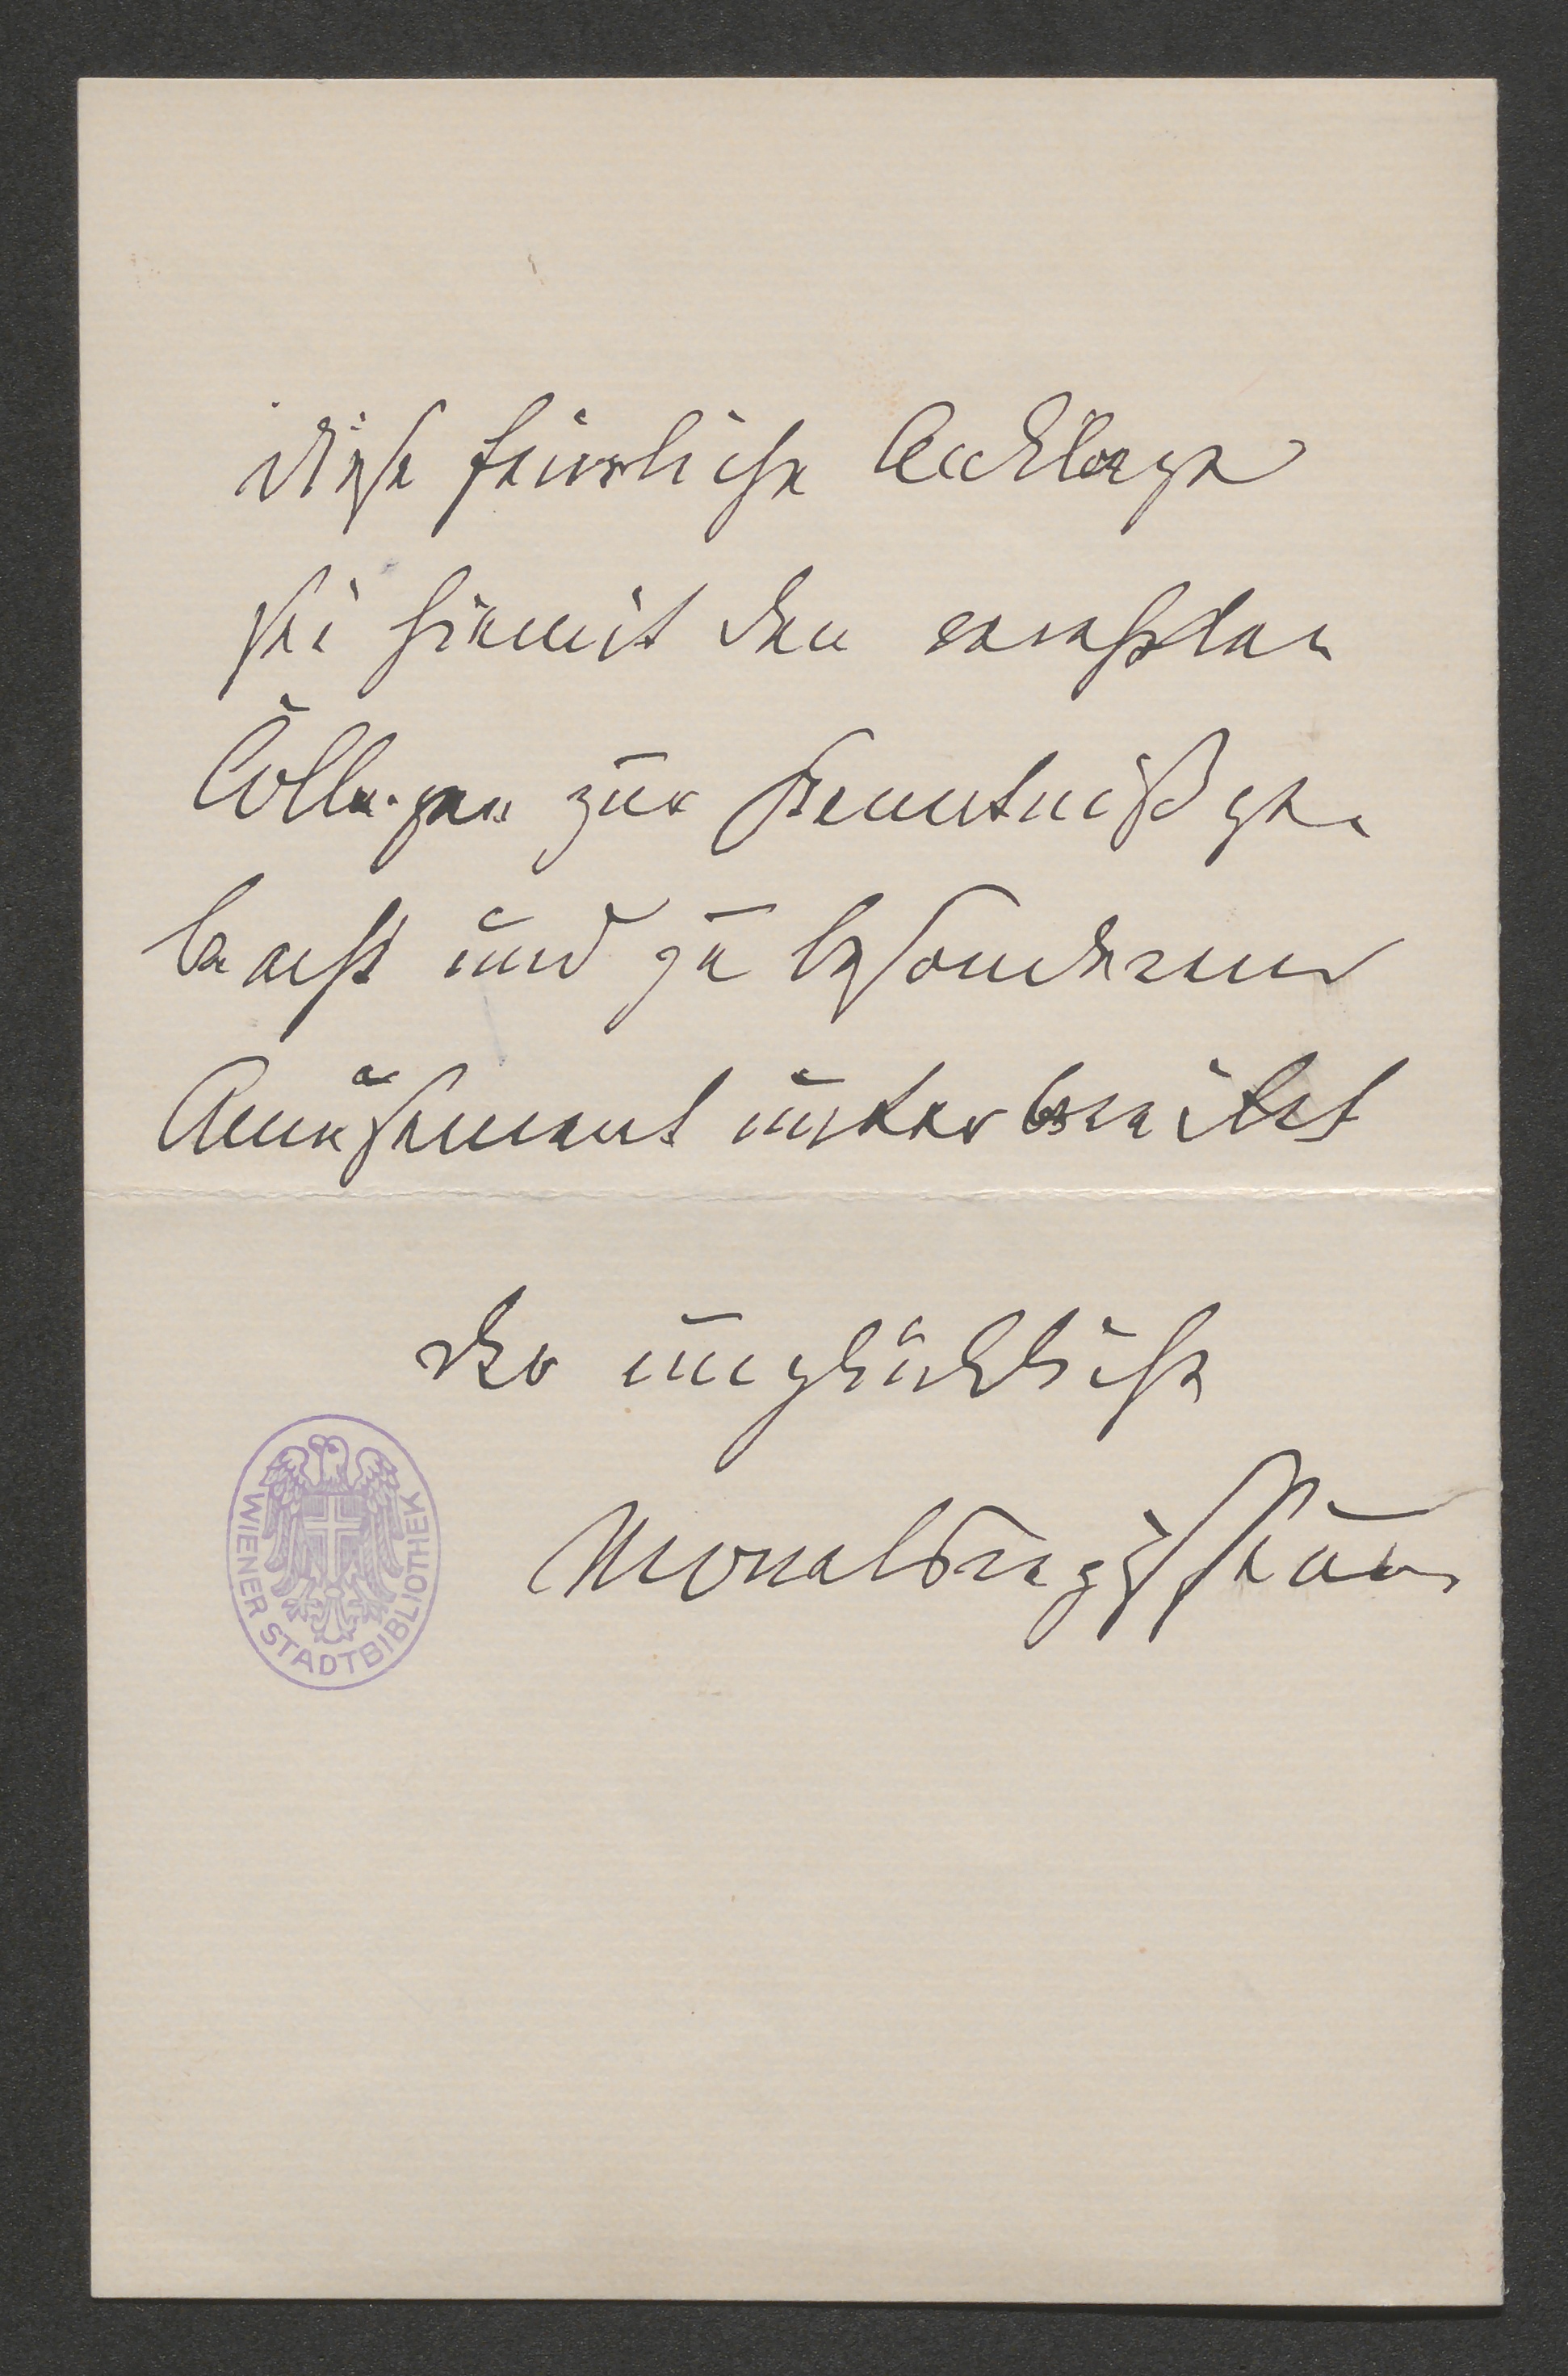 Diese feierliche Anklage
sei hiemit den verehrten
Collegen zur Kenntniß ge-
bracht und zu besonderem
Amüsement unterbreitet
der unglückliche
Monatsregisseur
WIENER STADTBIBLIOTHEK